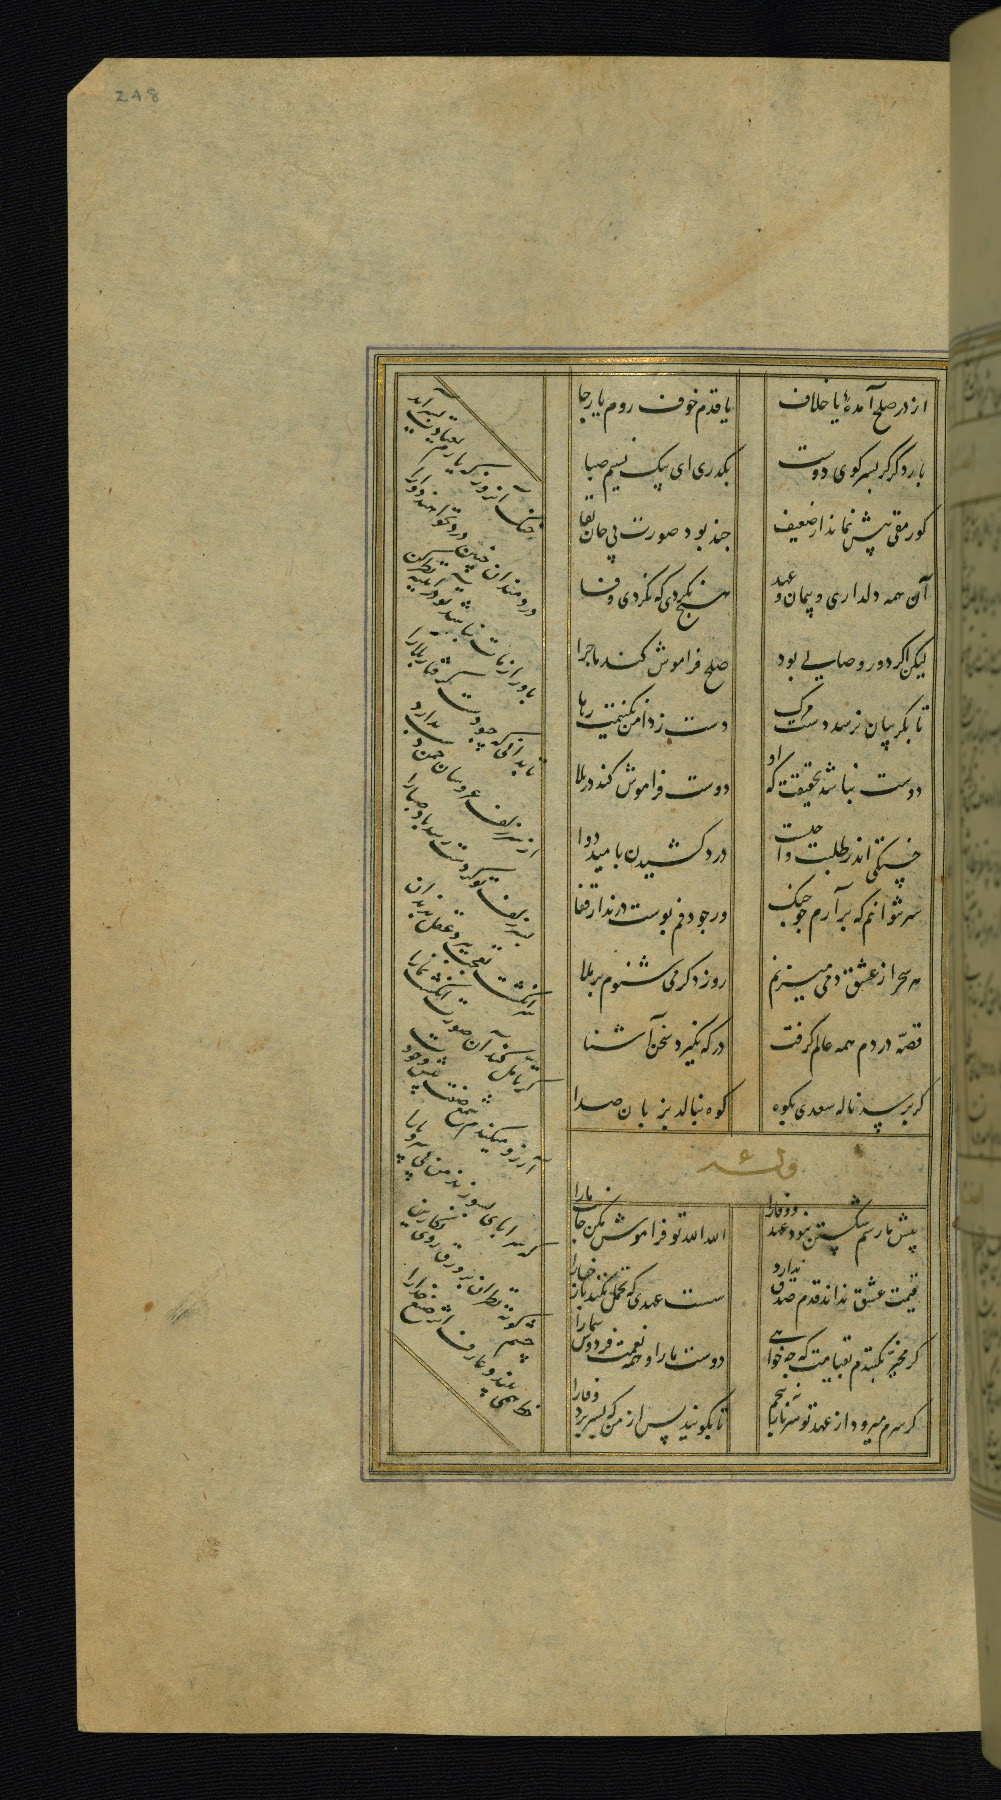 248
از در صلح آمدهٔ یا خلاف
یا قدم خوف روم یا رجا
بار دگر گر بسر کوی دوست
بگذری ای پیک نسیم صبا
کو رمقی پیش نماند از ضعیف
چند بود صورت بی جان بقا
آن همه دلداری و پیمان و عهد
هیچ نکردی که نکردی وفا
لیکن اگر دور وصالی بود
صلح فراموش کند ماجرا
تا بگریبان نرسد دست مرگ
دست ز دامن نکنیمت رها
دوست نباشد بحقیقت که او
دوست فراموش کند در بلا
خستگی اندر طلبت راحتست
درد کشیدن بامید دوا
سر نتوانم که برآرم چو چنگ
ور چو دفم پوست بدرند از قفا
هر سحر از عشق دمی میزنم
روز دگر می شنوم بر ملا
قصهٔ دردم همه عالم گرفت
در که نگیرد سخن آشنا
گر برسد ناله سعدی بکوه
کوه بنالد بزبان صدا
وله
پیش ما رسم شکستن نبود عهد و وفا را
الله الله تو فراموش مکن جانب ما را
قیمت عشق نداند قدم صدق ندارد
سست عهدی که تحمل نکند بار جفا را
گر مخیر بکنندم بقیامت که چه خواهی
دوست ما را و همه نعمت فردوس شما را
گر سرم میرود از عهد تو سر باز نپیچم
تا بگویند پس از من که بسر برد وفا را
خنک آنروز که یارم بعیادت بسر آید
دردمندان چنین درد نخواهند دوا را
باور از مات نباشد تو در آیینه نظر کن
تا بدانی که چه بودست گرفتار بلا را
از سر زلف عروسان چمن دست بدارد
بسر زلف تو گر دست رسد باد صبا را
سر انگشت تحیر بگزد عقل بدندان
گر تأمل کند آن صورت انگشت نما را
آرزو میکندم شمع صفت پیش وجودت
که سراپای بسوزند من بی سر و پا را
چشم کوته نظران بر ورق روی نگارین
خط همی بیند و عارف اثر صنع خدا را